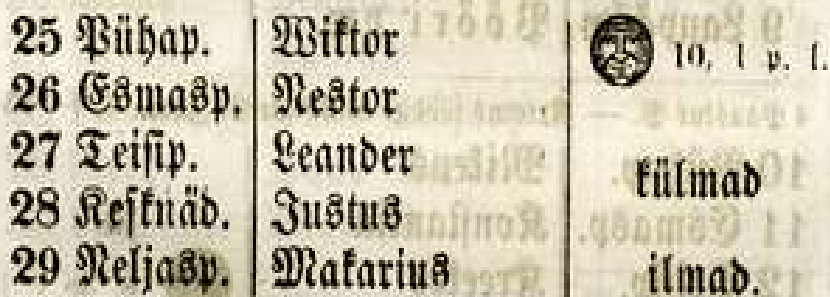 25 Pühap. Wiktor 10, 1 p. l.
26 Esmasp. Nestor
27 Teisip. Leander
28 Kesknäd. Justus külmad
29 Neljasp. Makarius ilmad.